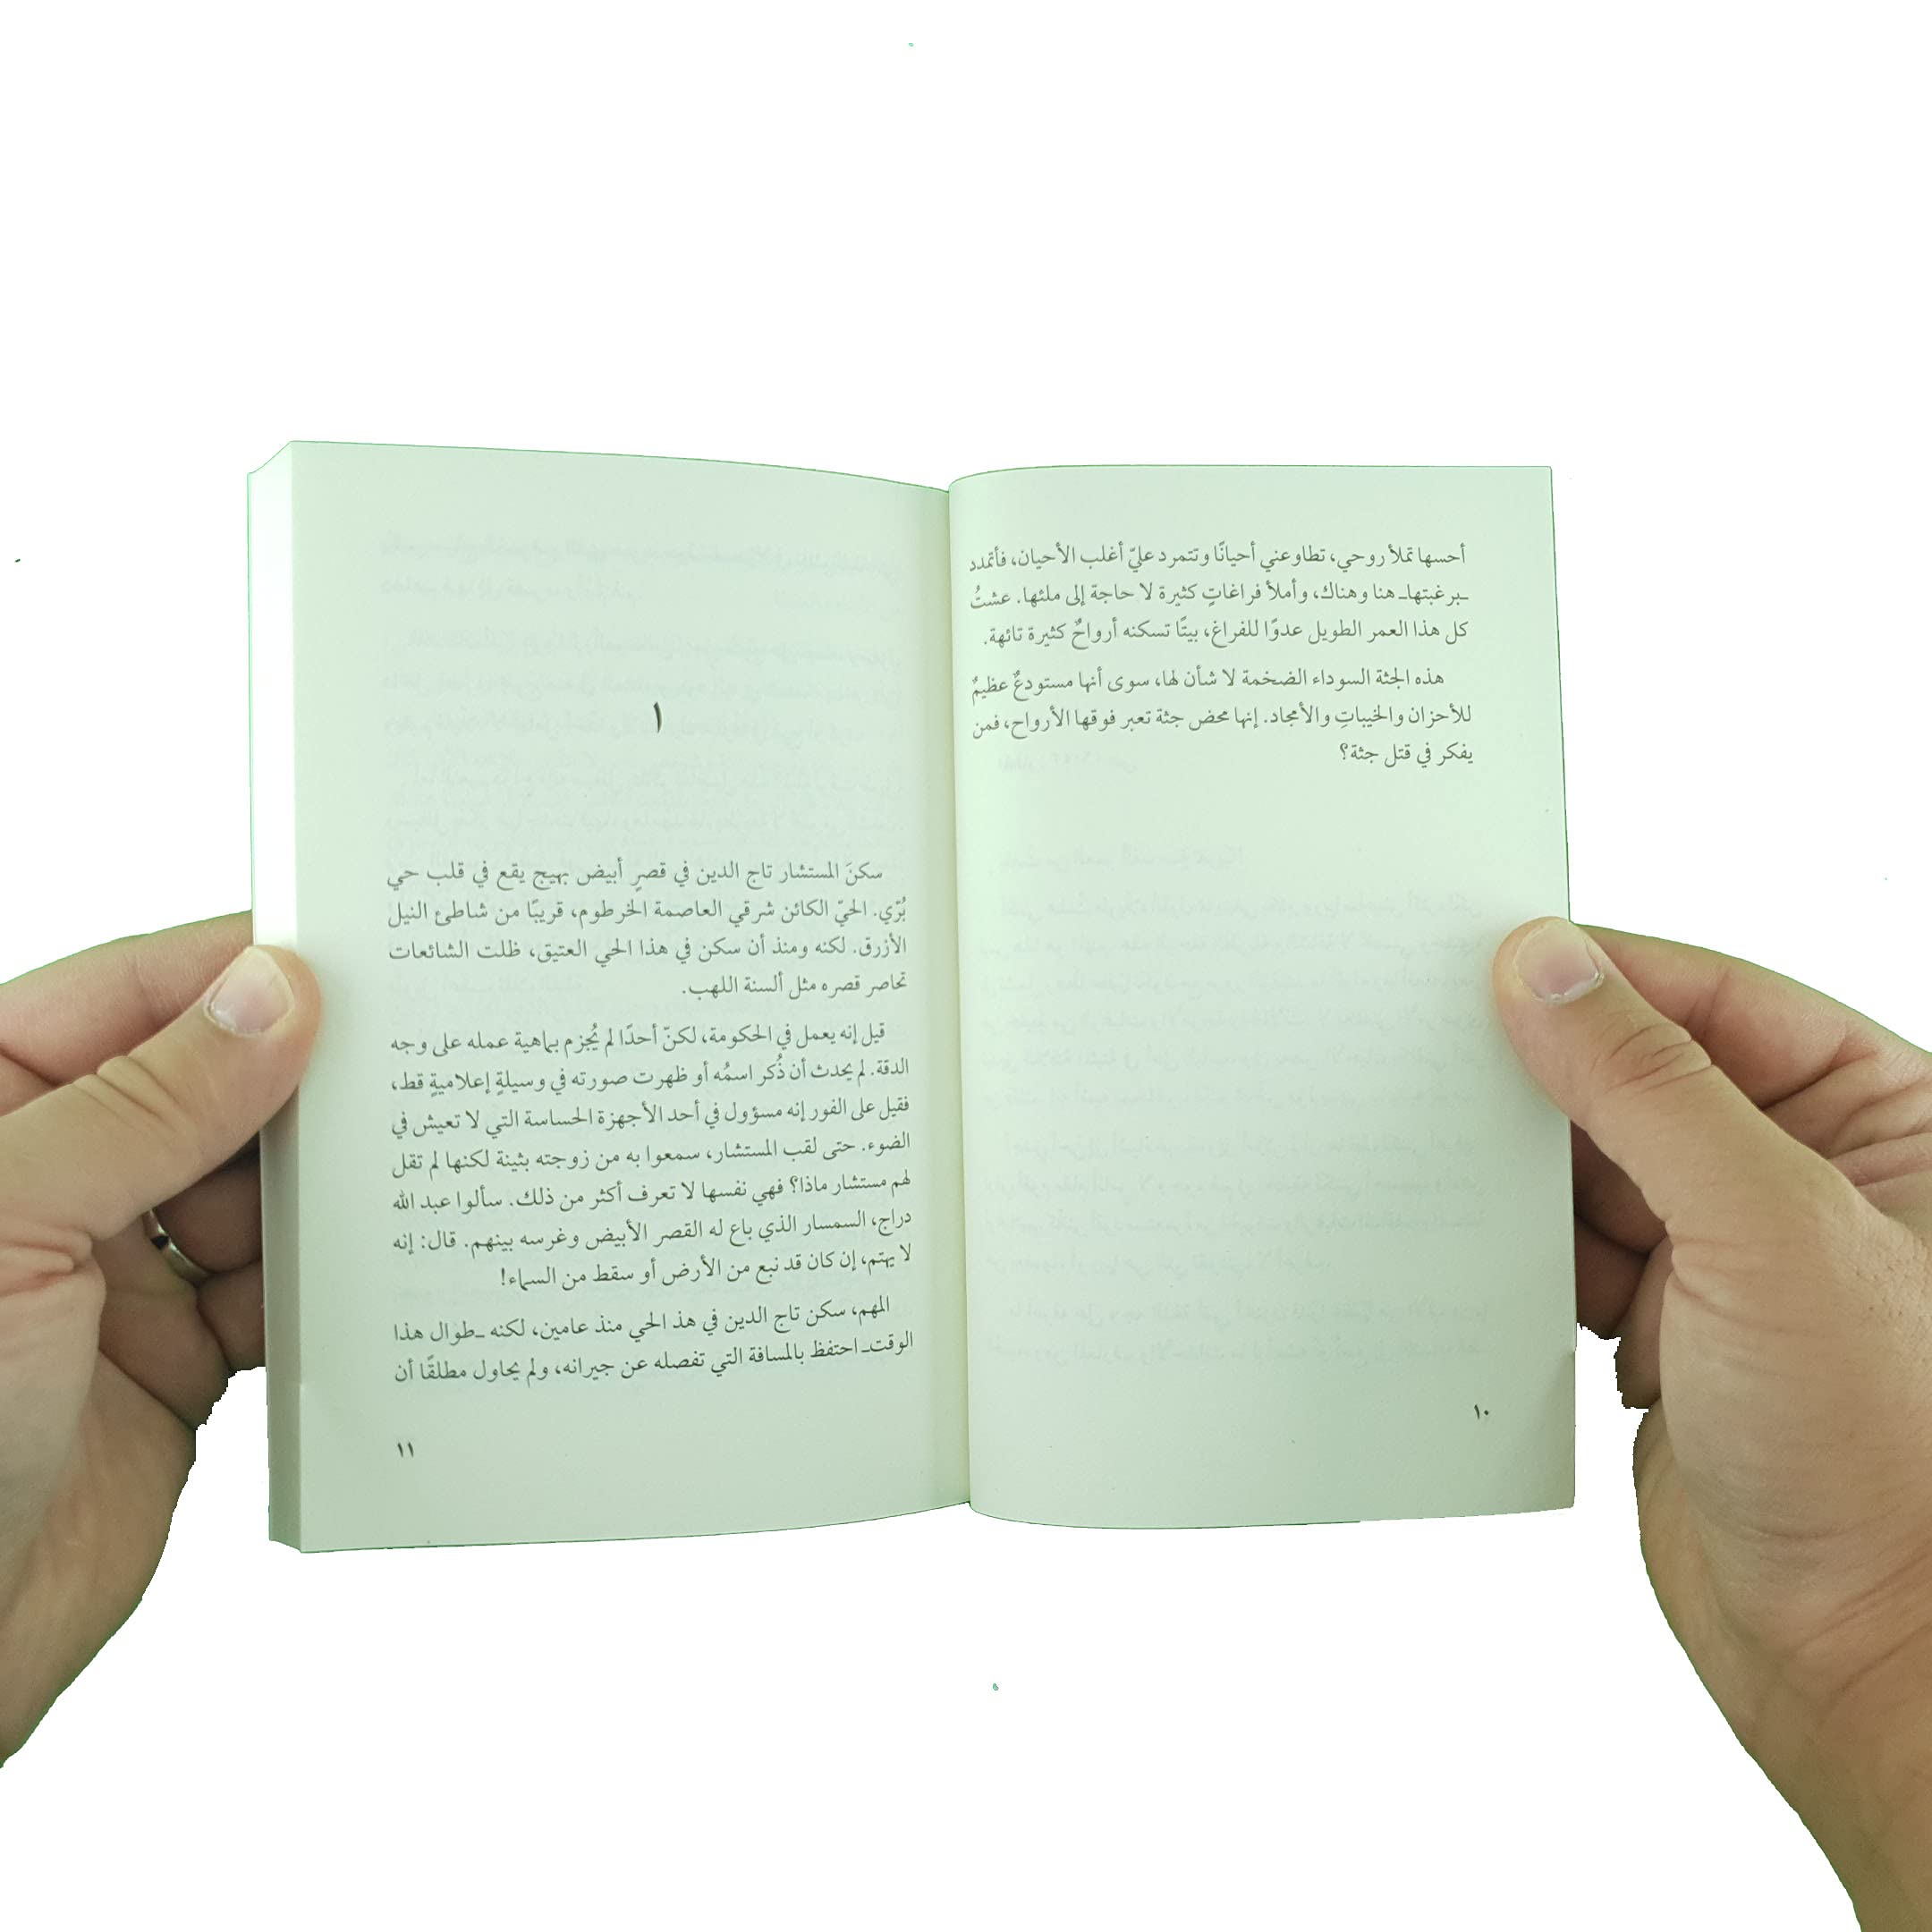 أحسها تملأ روحي، تطاوعني أحيانًا وتتمرد عليّ أغلب الأحيان، فأتمدد
ـبرغبتهاـ هنا وهناك، وأملأ فراغاتٍ كثيرة لا حاجة إلى ملئها. عشتُ
كل هذا العمر الطويل عدوًا للفراغ، بيتًا تسكنه أرواحٌ كثيرة تائهة.
هذه الجثة السوداء الضخمة لا شأن لها، سوى أنها مستودعٌ عظيمٌ
للأحزان والخيباتِ والأمجاد. إنها محض جثة تعبر فوقها الأرواح، فمن
يفكر في قتل جثة؟
١٠
١
سكنَ المستشار تاج الدين في قصرٍ أبيض بهيج يقع في قلب حي
بُرّي. الحيّ الكائن شرقي العاصمة الخرطوم، قريبًا من شاطئ النيل
الأزرق. لكنه ومنذ أن سكن في هذا الحي العتيق، ظلت الشائعات
تحاصر قصره مثل ألسنة اللهب.
قيل إنه يعمل في الحكومة، لكنّ أحدًا لم يُجزم بماهية عمله على وجه
الدقة. لم يحدث أن ذُكر اسمُه أو ظهرت صورته في وسيلةٍ إعلاميةٍ قط،
فقيل على الفور إنه مسؤول في أحد الأجهزة الحساسة التي لا تعيش في
الضوء. حتى لقب المستشار، سمعوا به من زوجته بثينة لكنها لم تقل
لهم مستشار ماذا؟ فهي نفسها لا تعرف أكثر من ذلك. سألوا عبد الله
دراج، السمسار الذي باع له القصر الأبيض وغرسه بينهم. قال: إنه
لا يهتم، إن كان قد نبع من الأرض أو سقط من السماء!
المهم، سكن تاج الدين في هذ الحي منذ عامين، لكنه ـطوال هذا
الوقتـ احتفظ بالمسافة التي تفصله عن جيرانه، ولم يحاول مطلقًا أن
١١